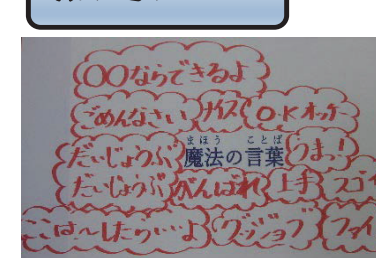 〇〇ならできるよ
ごめんなさい ナイス O.K オッケー
だいじょうぶ 魔法の言葉 うまっ!
まほう ことば
だいじょうぶ がんばれ 上手 スゴイ
グッジョブ ファイ